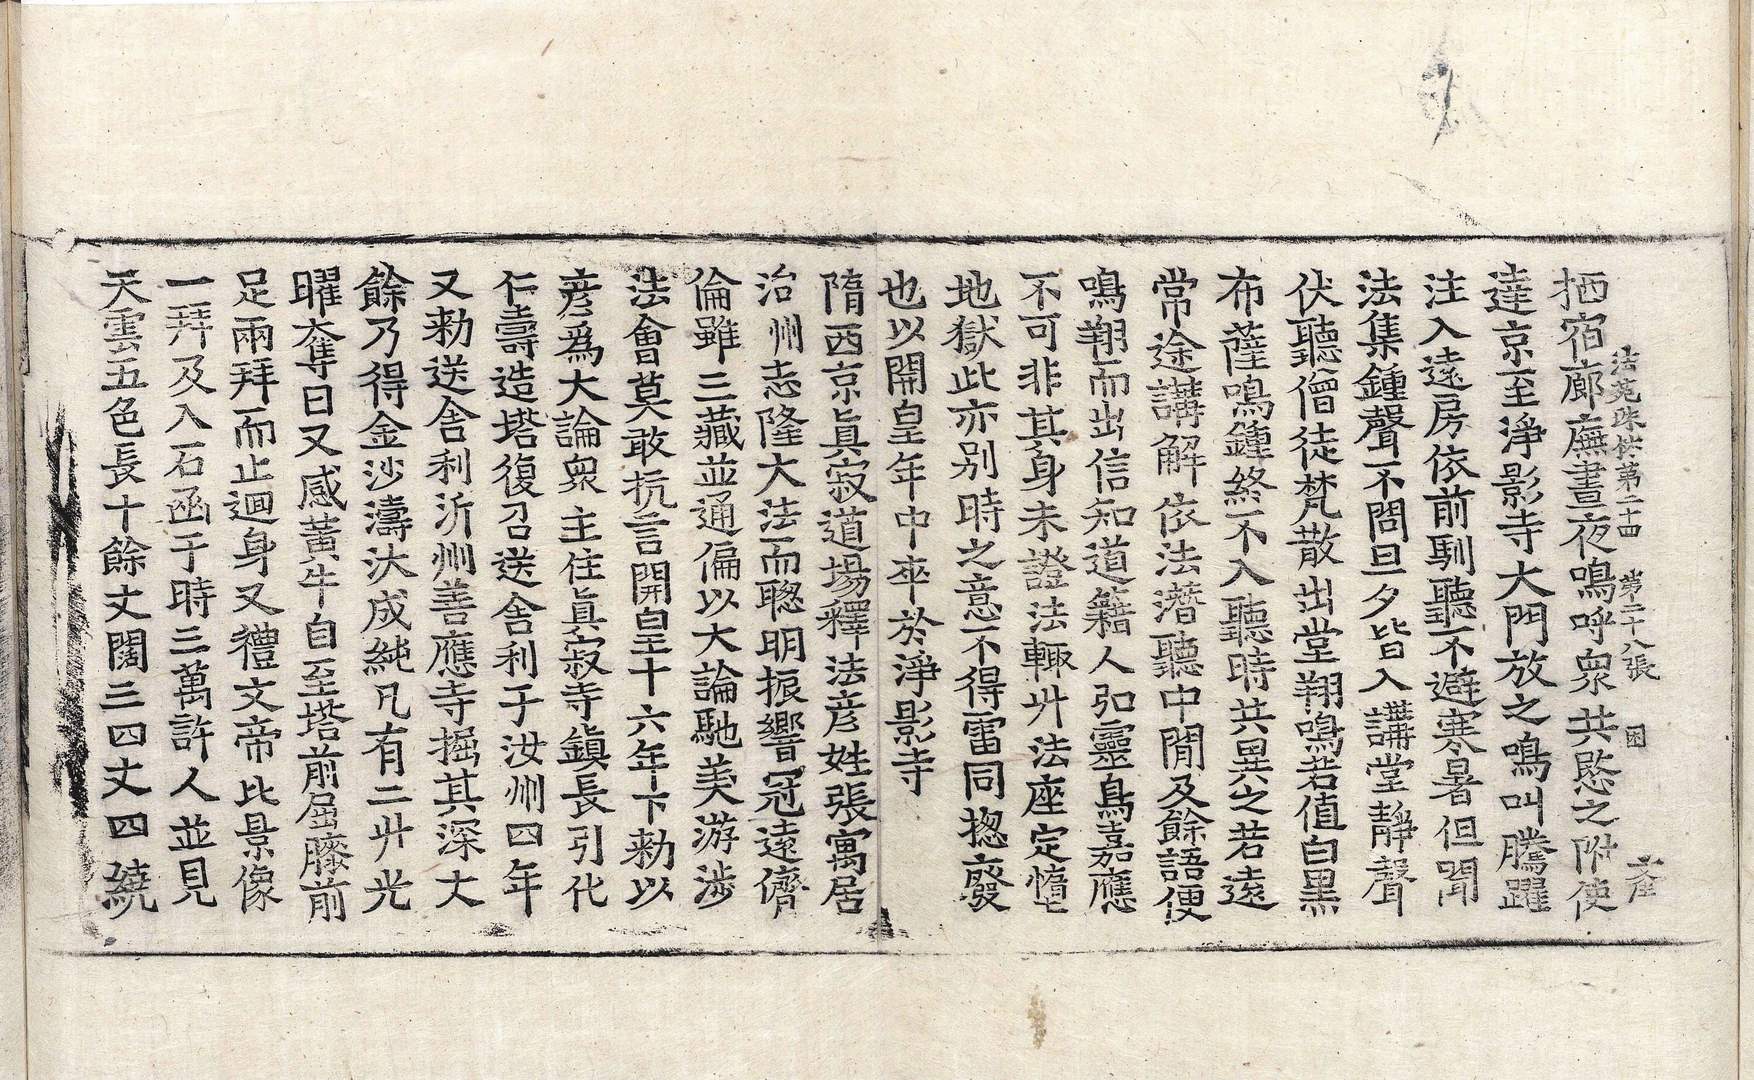 法苑珠林第二十四 第二十八張 困
栖宿廊廡晝夜鳴呼衆共愍之附使
達京至淨影寺大門放之鳴叫騰躍
注入遠房依前馴聽不避寒暑但聞
法集鍾聲不問旦夕皆入講堂靜聲
伏聽僧徒梵散出堂翔鳴若值白黑
布薩鳴鍾終不入聽時共異之若遠
常途講解依法潛聽中閒及餘語便
鳴翔而出信知道籍人弘靈鳥嘉應
不可非其身未證法輙升法座定墮
地獄此亦別時之意不得雷同揔廢
也以開皇年中卒於淨影寺
隋西京眞寂道場釋法彦姓張寓居
治州志隆大法而聦明振響冠遠儕
倫雖三藏並通偏以大論馳美游涉
法會莫敢抗言開皇十六年下勑以
彦爲大論衆主住眞寂寺鎭長引化
仁壽造塔復召送舍利于汝州四年
又勑送舍利沂州善應寺掘其深丈
餘乃得金沙濤汰成純凡有二升光
曜奪日又感黃牛自至塔前屈膝前
足兩拜而止迴身又禮文帝比景像
一拜及入石函于時三萬許人並見
天雲五色長十餘丈闊三四丈四繞